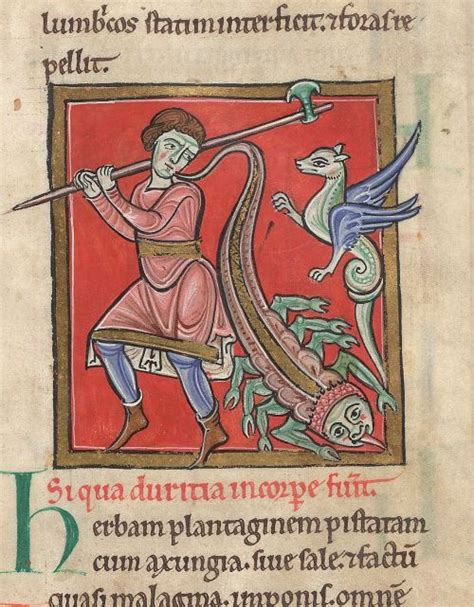 lumbricos statim interficit. & foras re
pellit.
Si qua duritia in corpore fuerit.
Herbam plantaginem pistatam
cum axungia. siue sale. & factū
quasi malagma. imponis. omnē